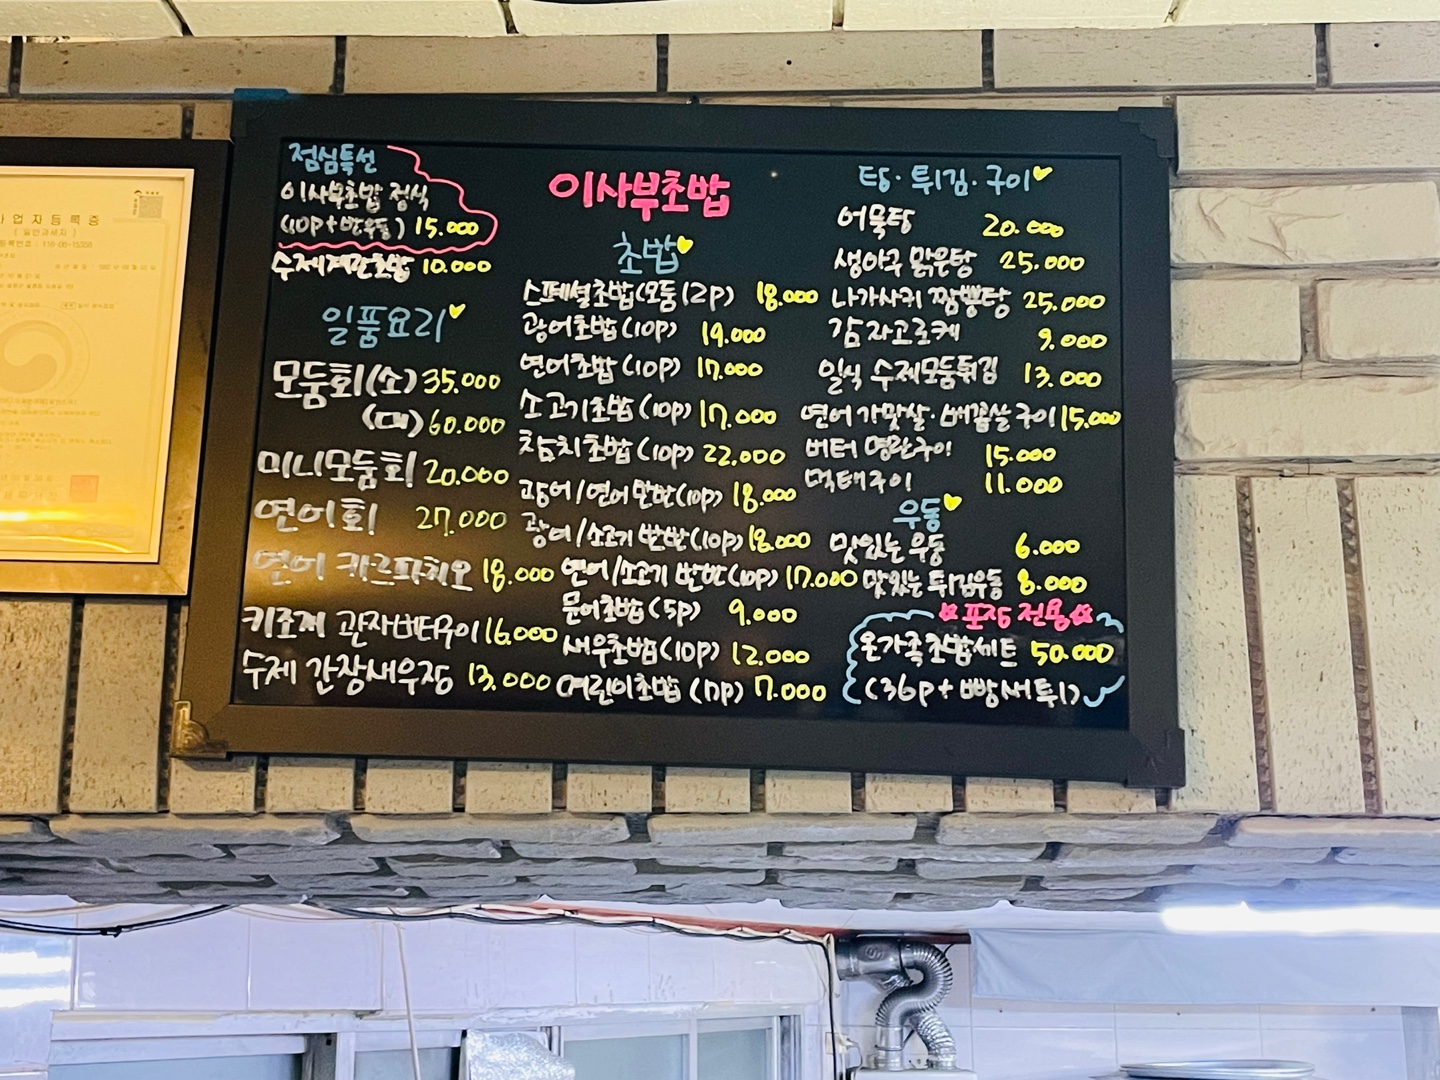 점심특선
이사부초밥 정식
(10p+반우동) 15.000
수제계란초밥 10.000
일품요리
모둠회(소) 35.000
(대) 60.000
미니모둠회 20.000
연어회 27.000
연어 카르파치오 18.000
키조개 관자버터구이 16.000
수제 간장새우장 13.000
이사부초밥
초밥
스페셜초밥(모둠12p) 18.000
광어초밥(10p) 19.000
연어초밥(10p) 17.000
소고기초밥(10p) 17.000
참치초밥(10p) 22.000
광어/연어 반반(10p) 18.000
광어/소고기 반반(10p) 18.000
연어/소고기 반반(10p) 17.000
문어초밥(5p) 9.000
새우초밥(10p) 12.000
어린이초밥(7p) 7.000
탕·튀김·구이
어묵탕 20.000
생아구 맑은탕 25.000
나가사키 짬뽕탕 25.000
감자고로케 9.000
일식 수제모둠튀김 13.000
연어 가맛살·배꼽살 구이 15.000
버터 명란구이 15.000
먹태구이 11.000
우동
맛있는 우동 6.000
맛있는 튀김우동 8.000
포장 전용
온가족초밥세트 50.000
(36p+빵새튀)
사업자등록증
(일반과세자)